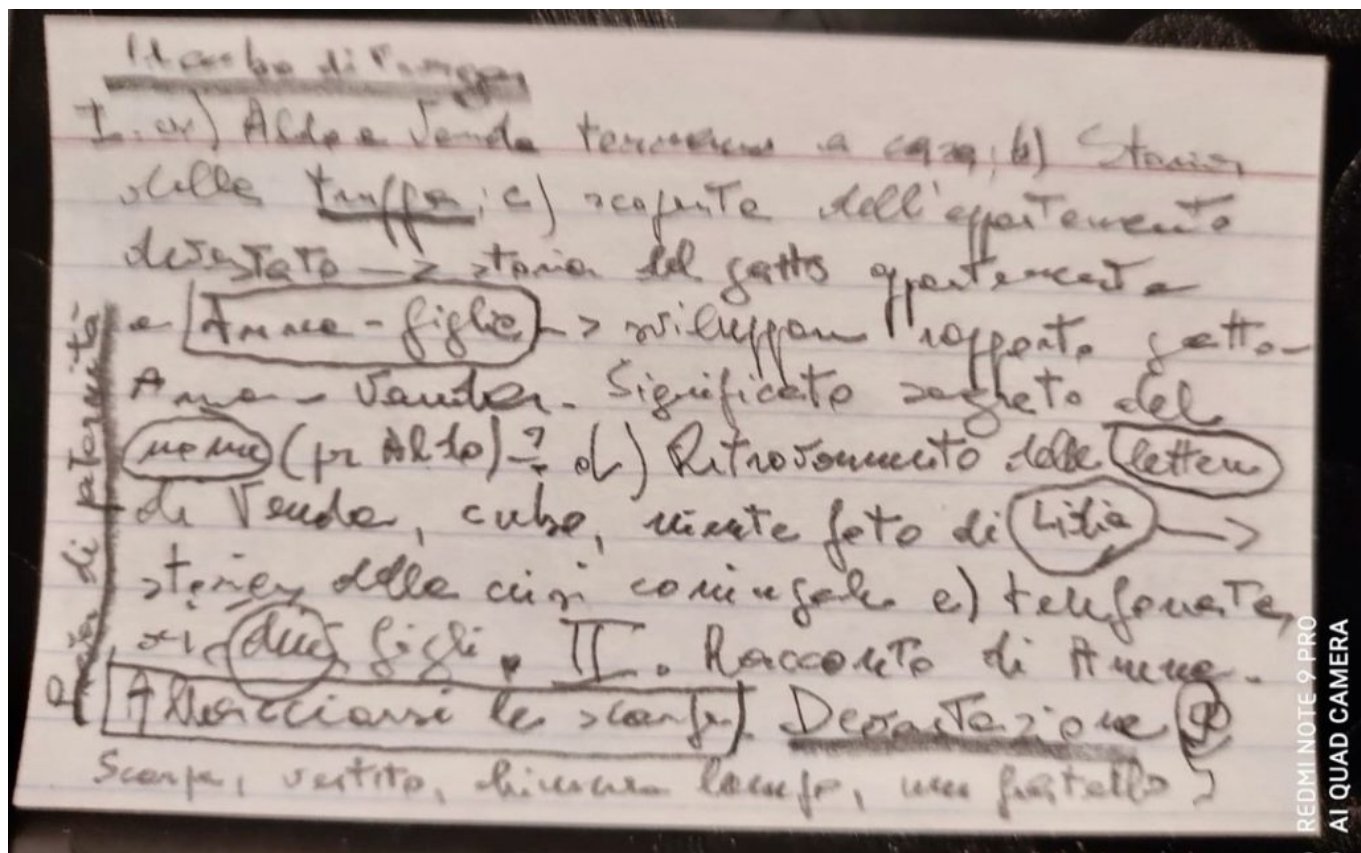 Il cubo di Praga
I. a) Aldo e Vanda tornano a casa; b) Storia
della truffa; c) scoperta dell'appartamento
devastato -> storia del gatto appartenente
a Anna - figlia -> sviluppare rapporto gatto-
Anna - Vanda. Significato segreto del
nome (pr Aldo)? d) Ritrovamento delle lettere
di Vanda, cubo, niente foto di Lidia ->
storia della crisi coniugale e) telefonata
ai due figli. II. Racconto di Anna.
Allacciarsi le scarpe. Devastazione
Scarpe, vestito, lampo, un fratello
di paternità
REDMI NOTE 9 PRO
AI QUAD CAMERA